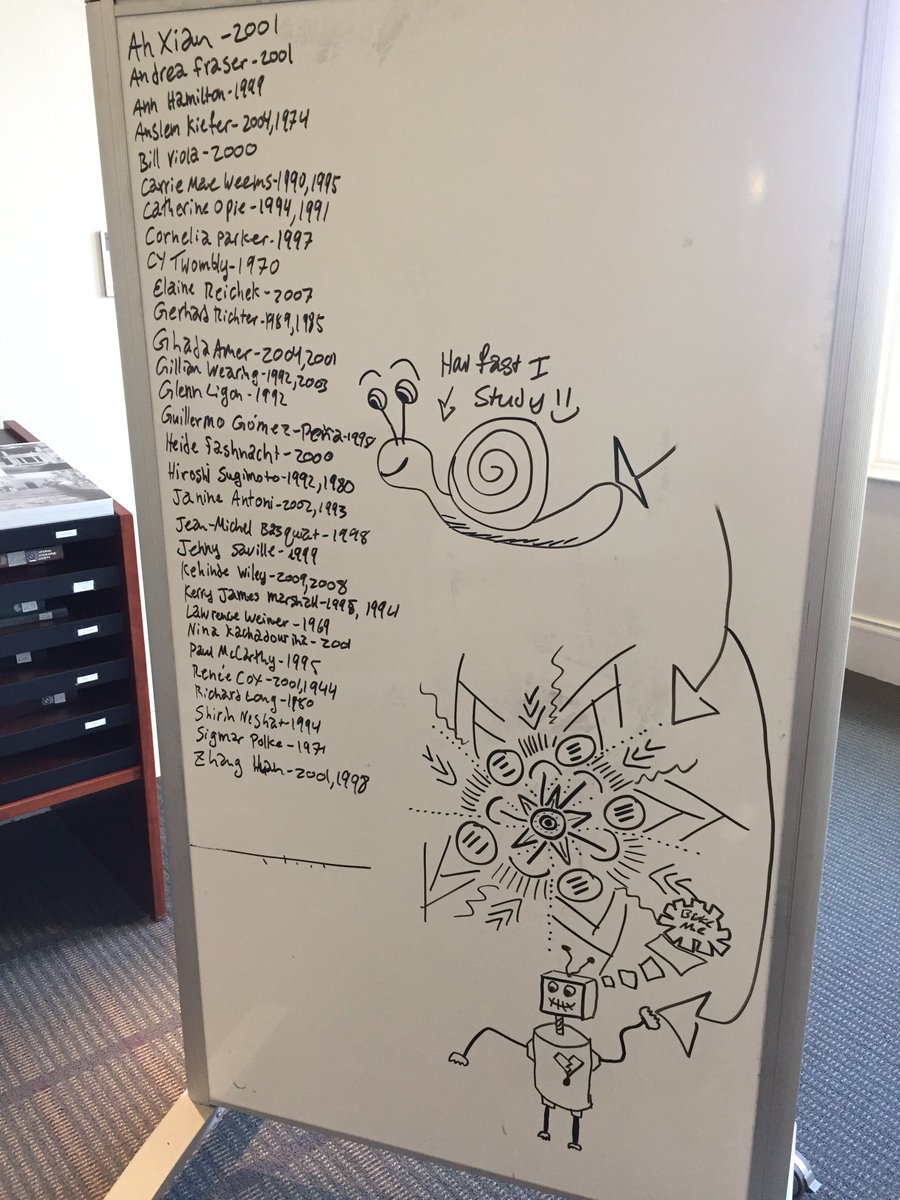 Ah Xian - 2001
Andrea Fraser - 2001
Ann Hamilton - 1999
Anslem Kiefer - 2004, 1974
Bill Viola - 2000
Carrie Mae Weems - 1990, 1995
Catherine Opie - 1994, 1991
Cornelia Parker - 1997
CY Twombly - 1970
Elaine Reichek - 2007
Gerhard Richter - 1989, 1985
Ghada Amer - 2004, 2001
Gillian Wearing - 1992, 2003
Glenn Ligon - 1992
Guillermo Gómez-Peña - 1998
Heide Fashnacht - 2000
Hiroshi Sugimoto - 1992, 1980
Janine Antoni - 2002, 1993
Jean-Michel Basquiat - 1998
Jenny Saville - 1999
Kehinde Wiley - 2009, 2008
Kerry James Marshall - 1998, 1994
Lawrence Weiner - 1969
Nina Kachadourina - 2001
Paul McCarthy - 1995
Renée Cox - 2001, 1944
Richard Long - 1980
Shirin Neshat - 1994
Sigmar Polke - 1971
Zhang Huan - 2001, 1998
How fast I
Study!!